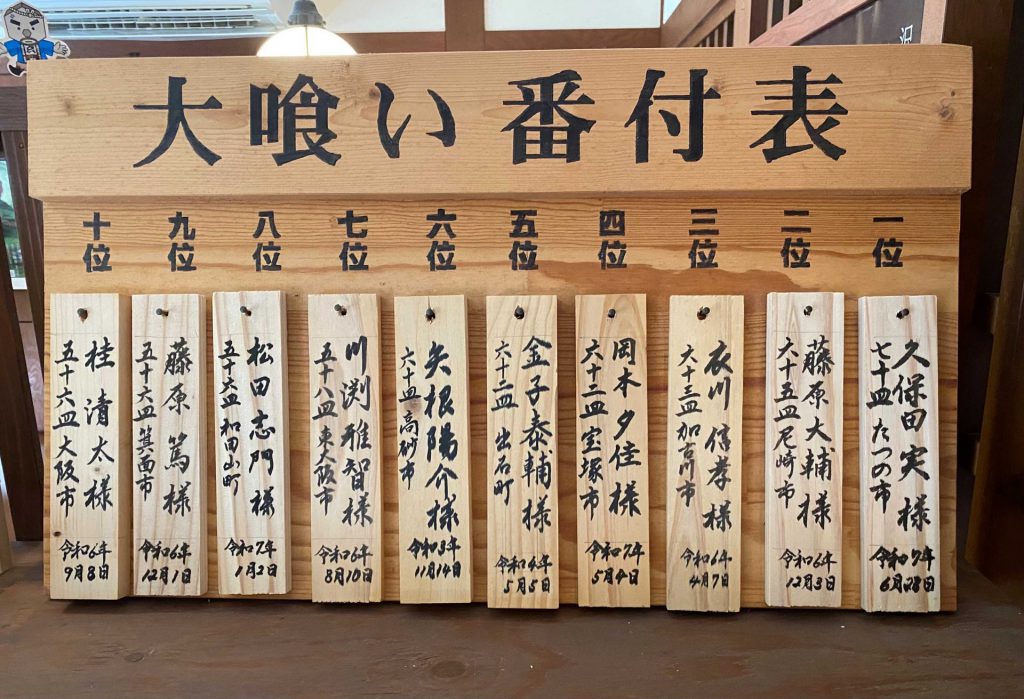 大喰い番付表
一位
久保田実様
七十皿 たつの市
令和7年
6月28日
二位
藤原大輔様
六十五皿 尼崎市
令和6年
12月3日
三位
衣川信孝様
六十三皿 加古川市
令和6年
4月7日
四位
岡本夕佳様
六十二皿 宝塚市
令和7年
5月4日
五位
金子泰輔様
六十二皿 出石町
令和4年
5月5日
六位
矢根陽介様
六十皿 高砂市
令和3年
11月14日
七位
川渕雅智様
五十八皿 東大阪市
令和6年
8月10日
八位
松田志門様
五十六皿 和田山町
令和7年
1月2日
九位
藤原篤様
五十六皿 箕面市
令和6年
12月1日
十位
桂清太様
五十六皿 大阪市
令和6年
9月8日